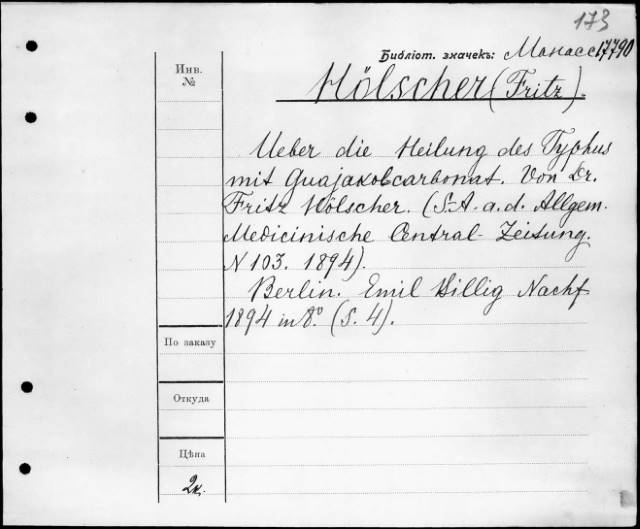 173
Библіот. значекъ: Манасс 17790
Инв.
№
Hölscher (Fritz).
Ueber die Heilung des Typhus
mit Guajakolcarbonat. Von Dr.
Fritz Hölscher. (S.-A. a. d. Allgem.
Medicinische Central-Zeitung.
N 103. 1894).
Berlin. Emil Billig Nachf
1894 in 8º. (S. 4).
По заказу
Откуда
Цѣна
2к.